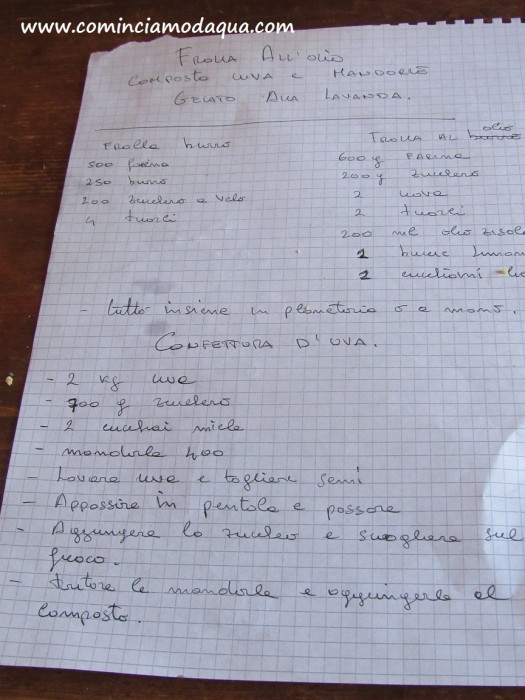 www.cominciamodaqua.com
FROLLA ALL'OLIO
COMPOSTO UVA E MANDORLE
GELATO ALLA LAVANDA.
Frolla burro
500 farina
250 burro
200 zucchero a velo
4 tuorli
FROLLA AL burro olio
600 g FARINA
200 g zucchero
2 uova
2 tuorli
200 ml olio
1 bucc limon
2 cucchiaini
- tutto insieme in planetaria o a mano.
CONFETTURA D'UVA.
- 2 kg uva
- 700 g zucchero
- 2 cucchiai miele
- mandorle 400
- Lavare uva e togliere semi
- Appassire in pentola e passare
- Aggiungere lo zucchero e sciogliere sul
fuoco.
- tritare le mandorle e aggiungerle al
composto.